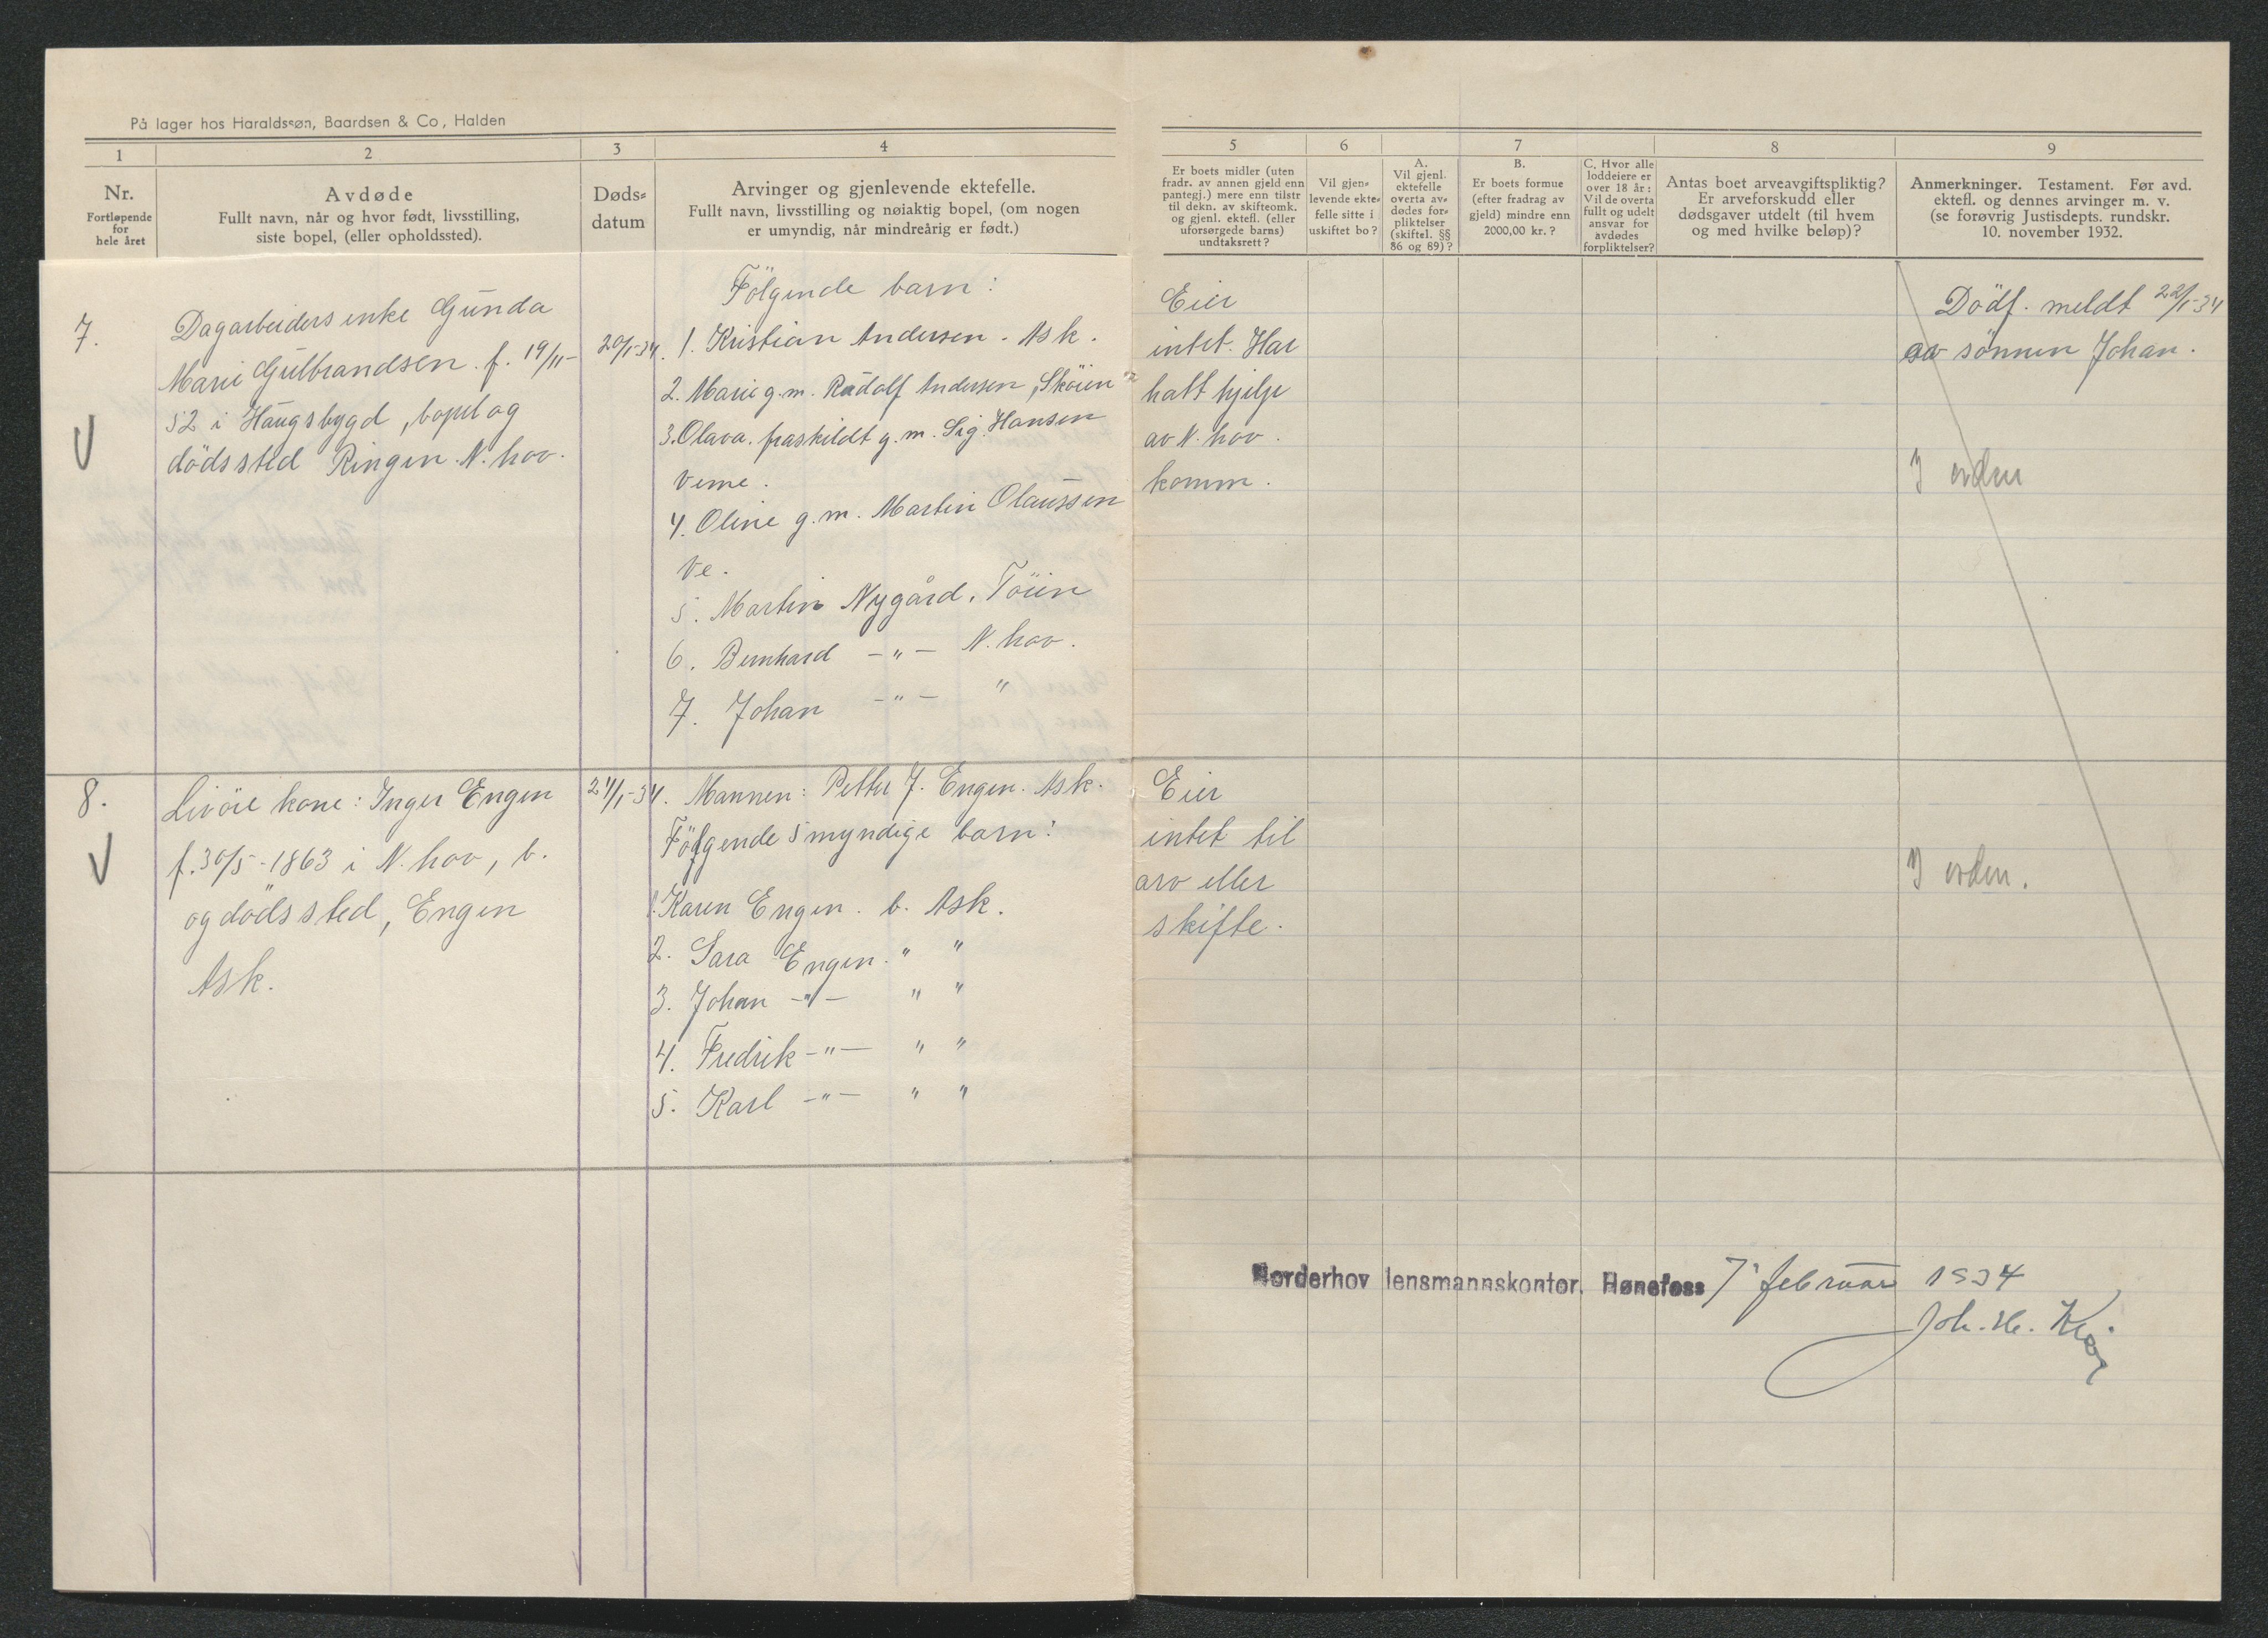 På lager hos Haraldssøn, Baardsen & Co, Halden
1
2
3
4
Nr.
Fortløpende
for
hele året
Avdøde
Fullt navn, når og hvor født, livsstilling,
siste bopel, (eller opholdssted).
Døds-
datum
Arvinger og gjenlevende ektefelle.
Fullt navn, livsstilling og nøiaktig bopel, (om nogen
er umyndig, når mindreårig er født.)
5
6
7
8
9
Er boets midler (uten
fradr. av annen gjeld enn
pantegj.) mere enn tilstr
til dekn. av skifteomk.
og gjenl. ektefl. (eller
uforsørgede barns)
undtaksrett?
Vil gjen-
levende ekte-
felle sitte i
uskiftet bo?
A.
Vil gjenl.
ektefelle
overta av-
dødes for-
pliktelser
(skiftel. §§
86 og 89)?
B.
Er boets formue
(efter fradrag av
gjeld) mindre enn
2000,00 kr.?
C. Hvor alle
loddeiere er
over 18 år:
Vil de overta
fullt og udelt
ansvar for
avdødes
forpliktelser?
Antas boet arveavgiftspliktig?
Er arveforskudd eller
dødsgaver utdelt (til hvem
og med hvilke beløp)?
Anmerkninger. Testament. Før avd.
ektefl. og dennes arvinger m. v.
(se forøvrig Justisdepts. rundskr.
10. november 1932.
7.
Dagarbeiders enke Gunda
Marie Gulbrandsen. f. 19/11-
52 i Haugsbygd, bopel og
dödssted Ringen N. hov.
20/1-34.
Fölgende barn:
1. Kristian Andersen. Ask.
2. Marie g.m. Rudolf Andersen, Sköien
3. Olava. fraskildt g.m. Sig. Hansen
Veme.
4. Oline g.m. Martin Olaussen
Ve.
5. Martin Nygård. Töien
6. Bernhard -"- N. hov.
7. Johan -"- "
Eier
intet. Har
hatt hjelp
av N. hov.
komm.
Dödf. meldt 22/1-34
av sönnen Johan.
I orden
8.
kone: Inger Engen
f. 30/5-1863 i N. hov, b.
og dödssted, Engen
Ask.
24/1-34.
Mannen: Petter J. Engen. Ask.
Fölgende 5 myndige barn:
1. Karen Engen. b. Ask.
2. Sara Engen. " "
3. Johan -"- " "
4. Fredrik -"- " "
5. Karl -"- " "
Eier
intet til
arv eller
skifte.
I orden.
Norderhov lensmannskontor, Hønefoss 7' februar 1934
Joh. H.